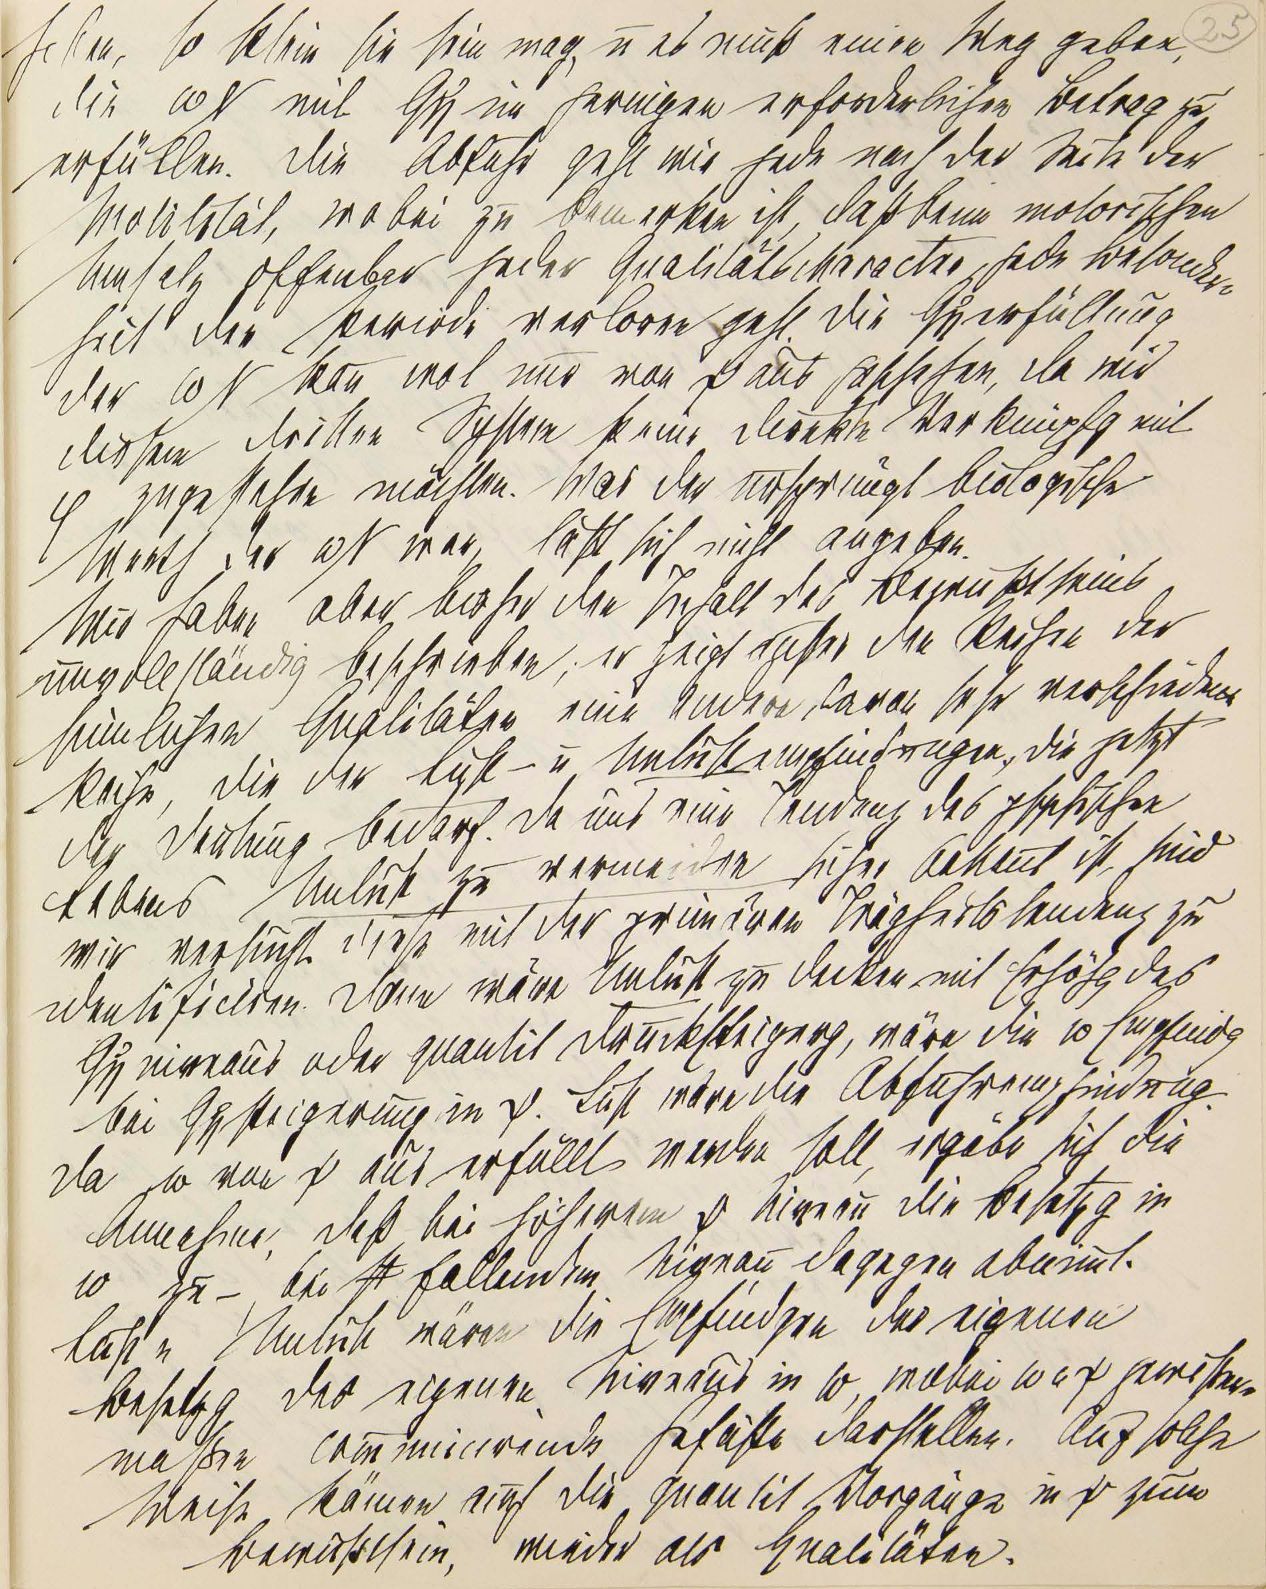 25
gehen, so klein sie sein mag, u es muß einen Weg geben,
die ωN mit Qη im geringen erforderlichen Betrag zu
erfüllen. Die Abfuhr geht wie jede nach der Seite der
Motilität, wobei zu bemerken ist, daß beim motorischen
Umsatz offenbar jeder Qualitätscharacter, jede Besonder-
heit der Periode verloren geht. Die Qηerfüllung
der ωN kann wol nur von ψ aus geschehen, da wir
diesem dritten System keine direkte Verknüpfg mit
φ zugestehen möchten. Was der ursprüngl biologische
Werth der ωN war, läßt sich nicht angeben.
Wir haben aber bisher den Inhalt des Bewußtseins
unvollständig beschrieben; er zeigt außer den Reihen der
sinnlichen Qualitäten eine andere, davon sehr verschiedene
Reihe, die der Lust- u Unlustempfindungen, die jetzt
der Deutung bedarf. Da uns eine Tendenz des psychischen
Lebens Unlust zu vermeiden sicher bekannt ist, sind
wir versucht diese mit der primären Trägheitstendenz zu
identificiren. Dann wäre Unlust zu decken mit Erhöhg des
Qηniveaus oder quantit Drucksteigerg, wäre die ω Empfindg
bei Qηsteigerung in ψ. Lust wäre die Abfuhrempfindung.
Da ω von ψ aus erfüllt werden soll, ergäbe sich die
Annahme, daß bei höherem ψ Niveau die Besetzg in
ω zu-, bei fallendem Niveau dagegen abnimmt.
Lust u Unlust wären die Empfindgen der eigenen
Besetzg, des eigenen Niveaus in ω, wobei ω u ψ gewisser-
maßen communicirende Gefäße darstellen. Auf solche
Weise kämen auch die quantit Vorgänge in ψ zum
Bewußtsein, wieder als Qualitäten.